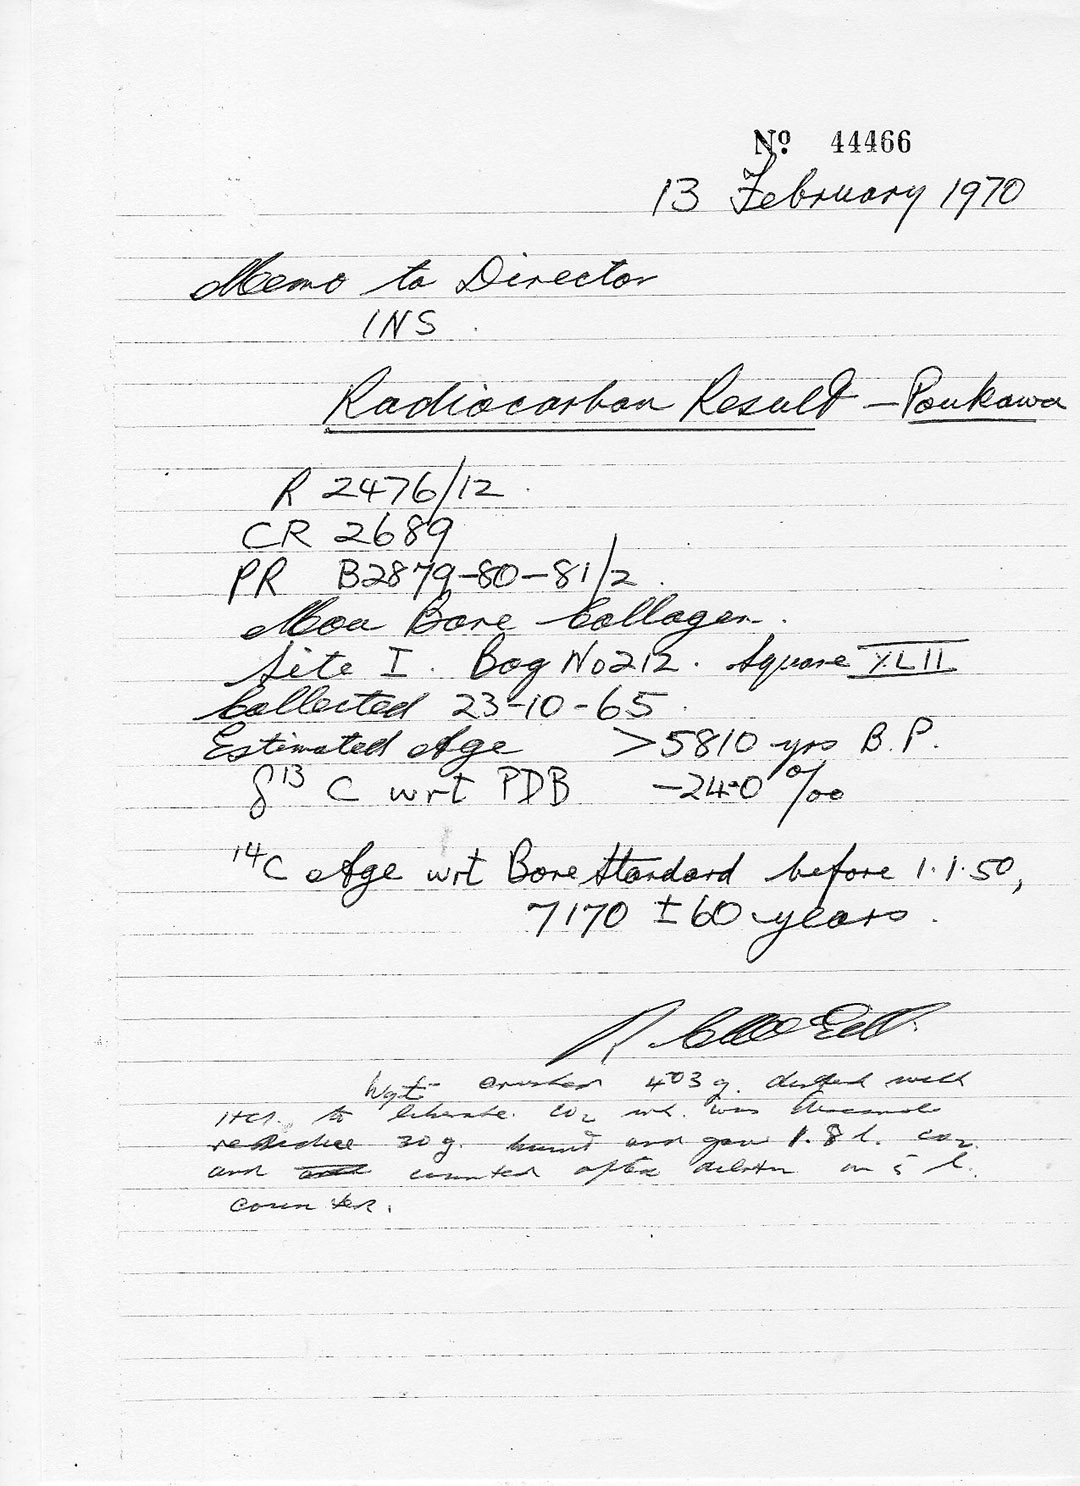 Nº 44466
13 February 1970
Memo to Director
INS
Radiocarbon Result - Poukawa
R 2476/12
CR 2689
PR B2879-80-81/2
Moa Bone Collagen.
Site I. Bag No 212. Square XLII
Collected 23-10-65
Estimated Age >5810 yrs B.P.
δ13 C wrt PDB -24.0 ‰
14C Age wrt Bone Standard before 1.1.50,
7170 ± 60 years.
R.
Wgt crushed 403 g. with
HCl. to liberate CO2 wh. was
residue 30 g. burnt and gave 1.8 l. CO2
and counted after dilution in 5 l.
counter.